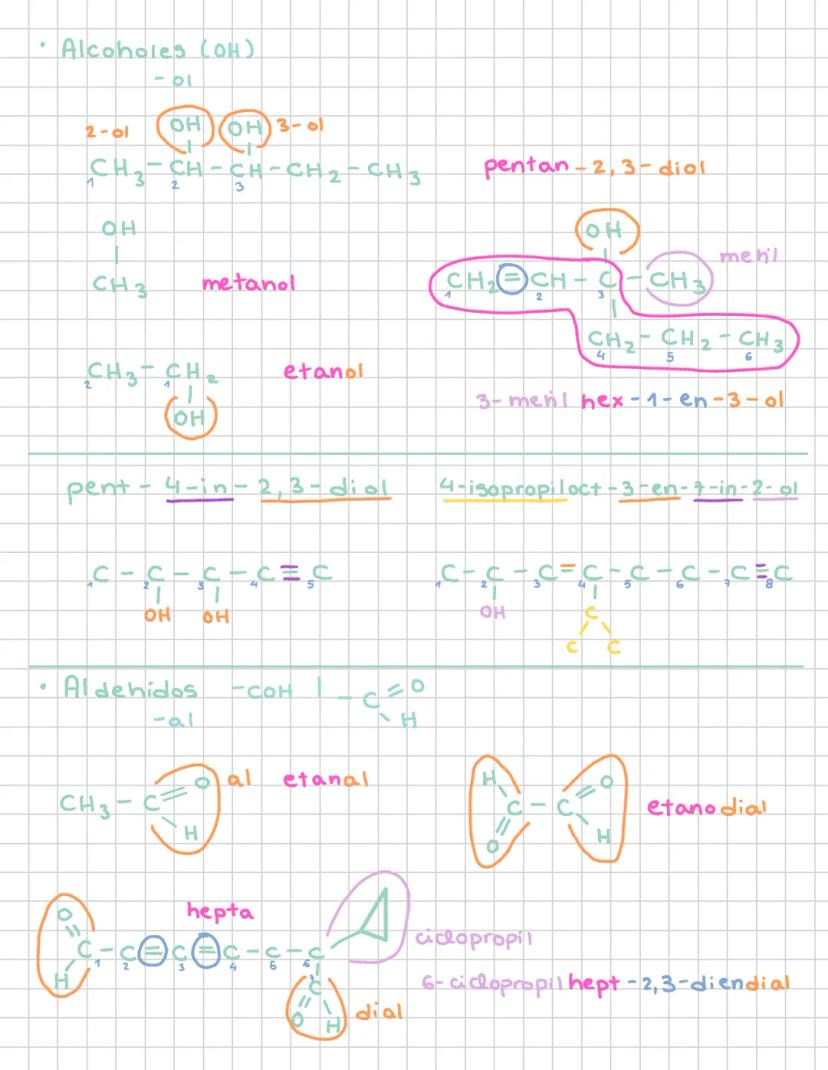 • Alcoholes (OH)
-ol
2-ol OH OH 3-ol
CH3 - CH - CH - CH2 - CH3 pentan - 2,3 - diol
1 2 3
OH
CH3 metanol
OH
CH2 = CH - C - CH3 metil
1 2 3
CH2 - CH2 - CH3
4 5 6
CH3 - CH2 etanol
2 1
OH
3-metil hex - 1 - en - 3 - ol
pent - 4-in - 2,3 - diol
4-isopropiloct - 3-en - 7-in - 2-ol
C - C - C - C ≡ C
1 2 3 4 5
OH OH
C - C - C = C - C - C - C - C ≡ C
1 2 3 4 5 6 7 8
OH C
C C
• Aldehidos -COH | - C = O
H
-al
CH3 - C = O al etanal
H
H O
C - C etanodial
O H
hepta
O
C - C = C = C - C - C ciclopropil
1 2 3 4 6 6
H
C
O H dial
6-ciclopropil hept - 2,3-diendial